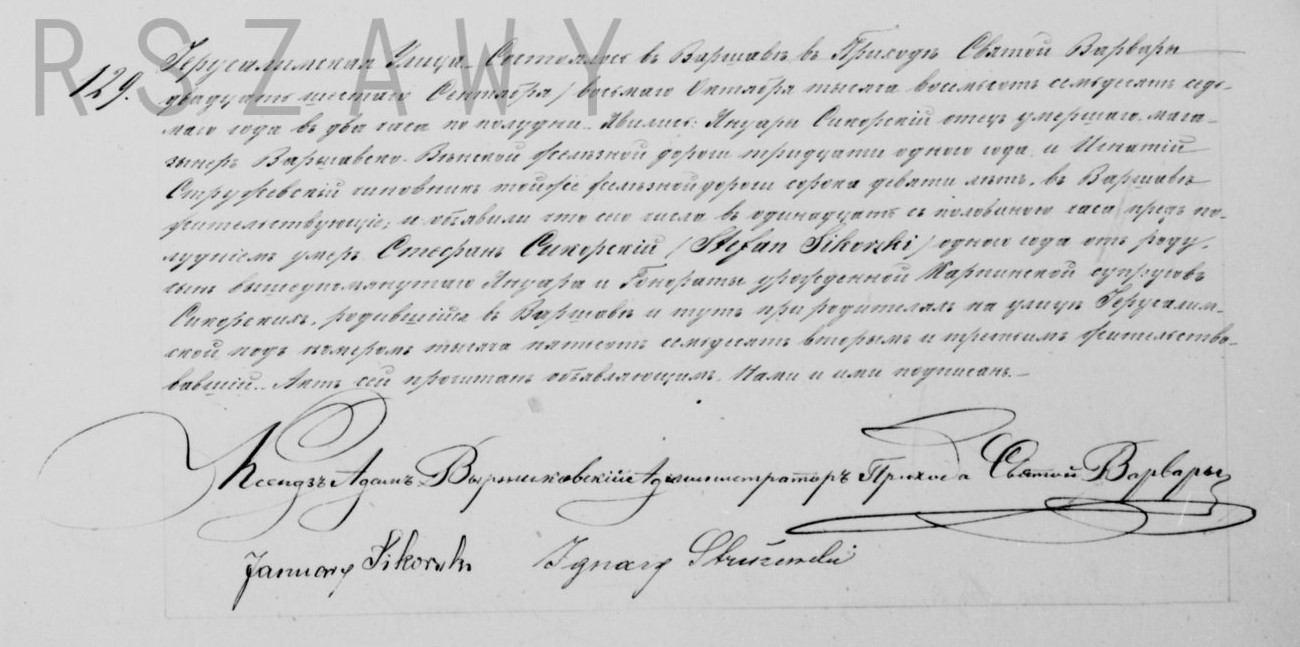 RSZAWY
129.
Іерусалимская Улица. Состоялось въ Варшавѣ въ Приходѣ Святой Варвары
двадцать шестаго Сентября / восьмаго Октября тысяча восемьсотъ семьдесятъ седь-
маго года въ два часа по полудни. Явились: Януарій Сикорскій отецъ умершаго, мага-
зынеръ Варшавско-Вѣнской желѣзной дороги тридцати одного года и Игнатій
Стружевскій чиновникъ тойже желѣзной дороги сорока девяти лѣтъ, въ Варшавѣ
жительствующіе; и объявили что сего числа въ одинадцать съ половиною часа предъ по-
луднiемъ умеръ Стефанъ Сикорскій (Stefan Sikorski) одного года отъ роду,
сынъ вышеупомянутаго Януара и Гонораты урожденной Карпинской супруговъ
Сикорскихъ, родившійся въ Варшавѣ и тутъ при родителяхъ на улицѣ Іерусалим-
ской подъ номеромъ тысяча пятьсотъ семьдесятъ вторымъ и третьимъ жительство-
вавшій. Актъ сей прочитанъ объявляющимъ, Нами и ими подписанъ.
Ксендзъ Адамъ Администраторъ Прихода Святой Варвары
January Sikorski Ignacy Strużewski